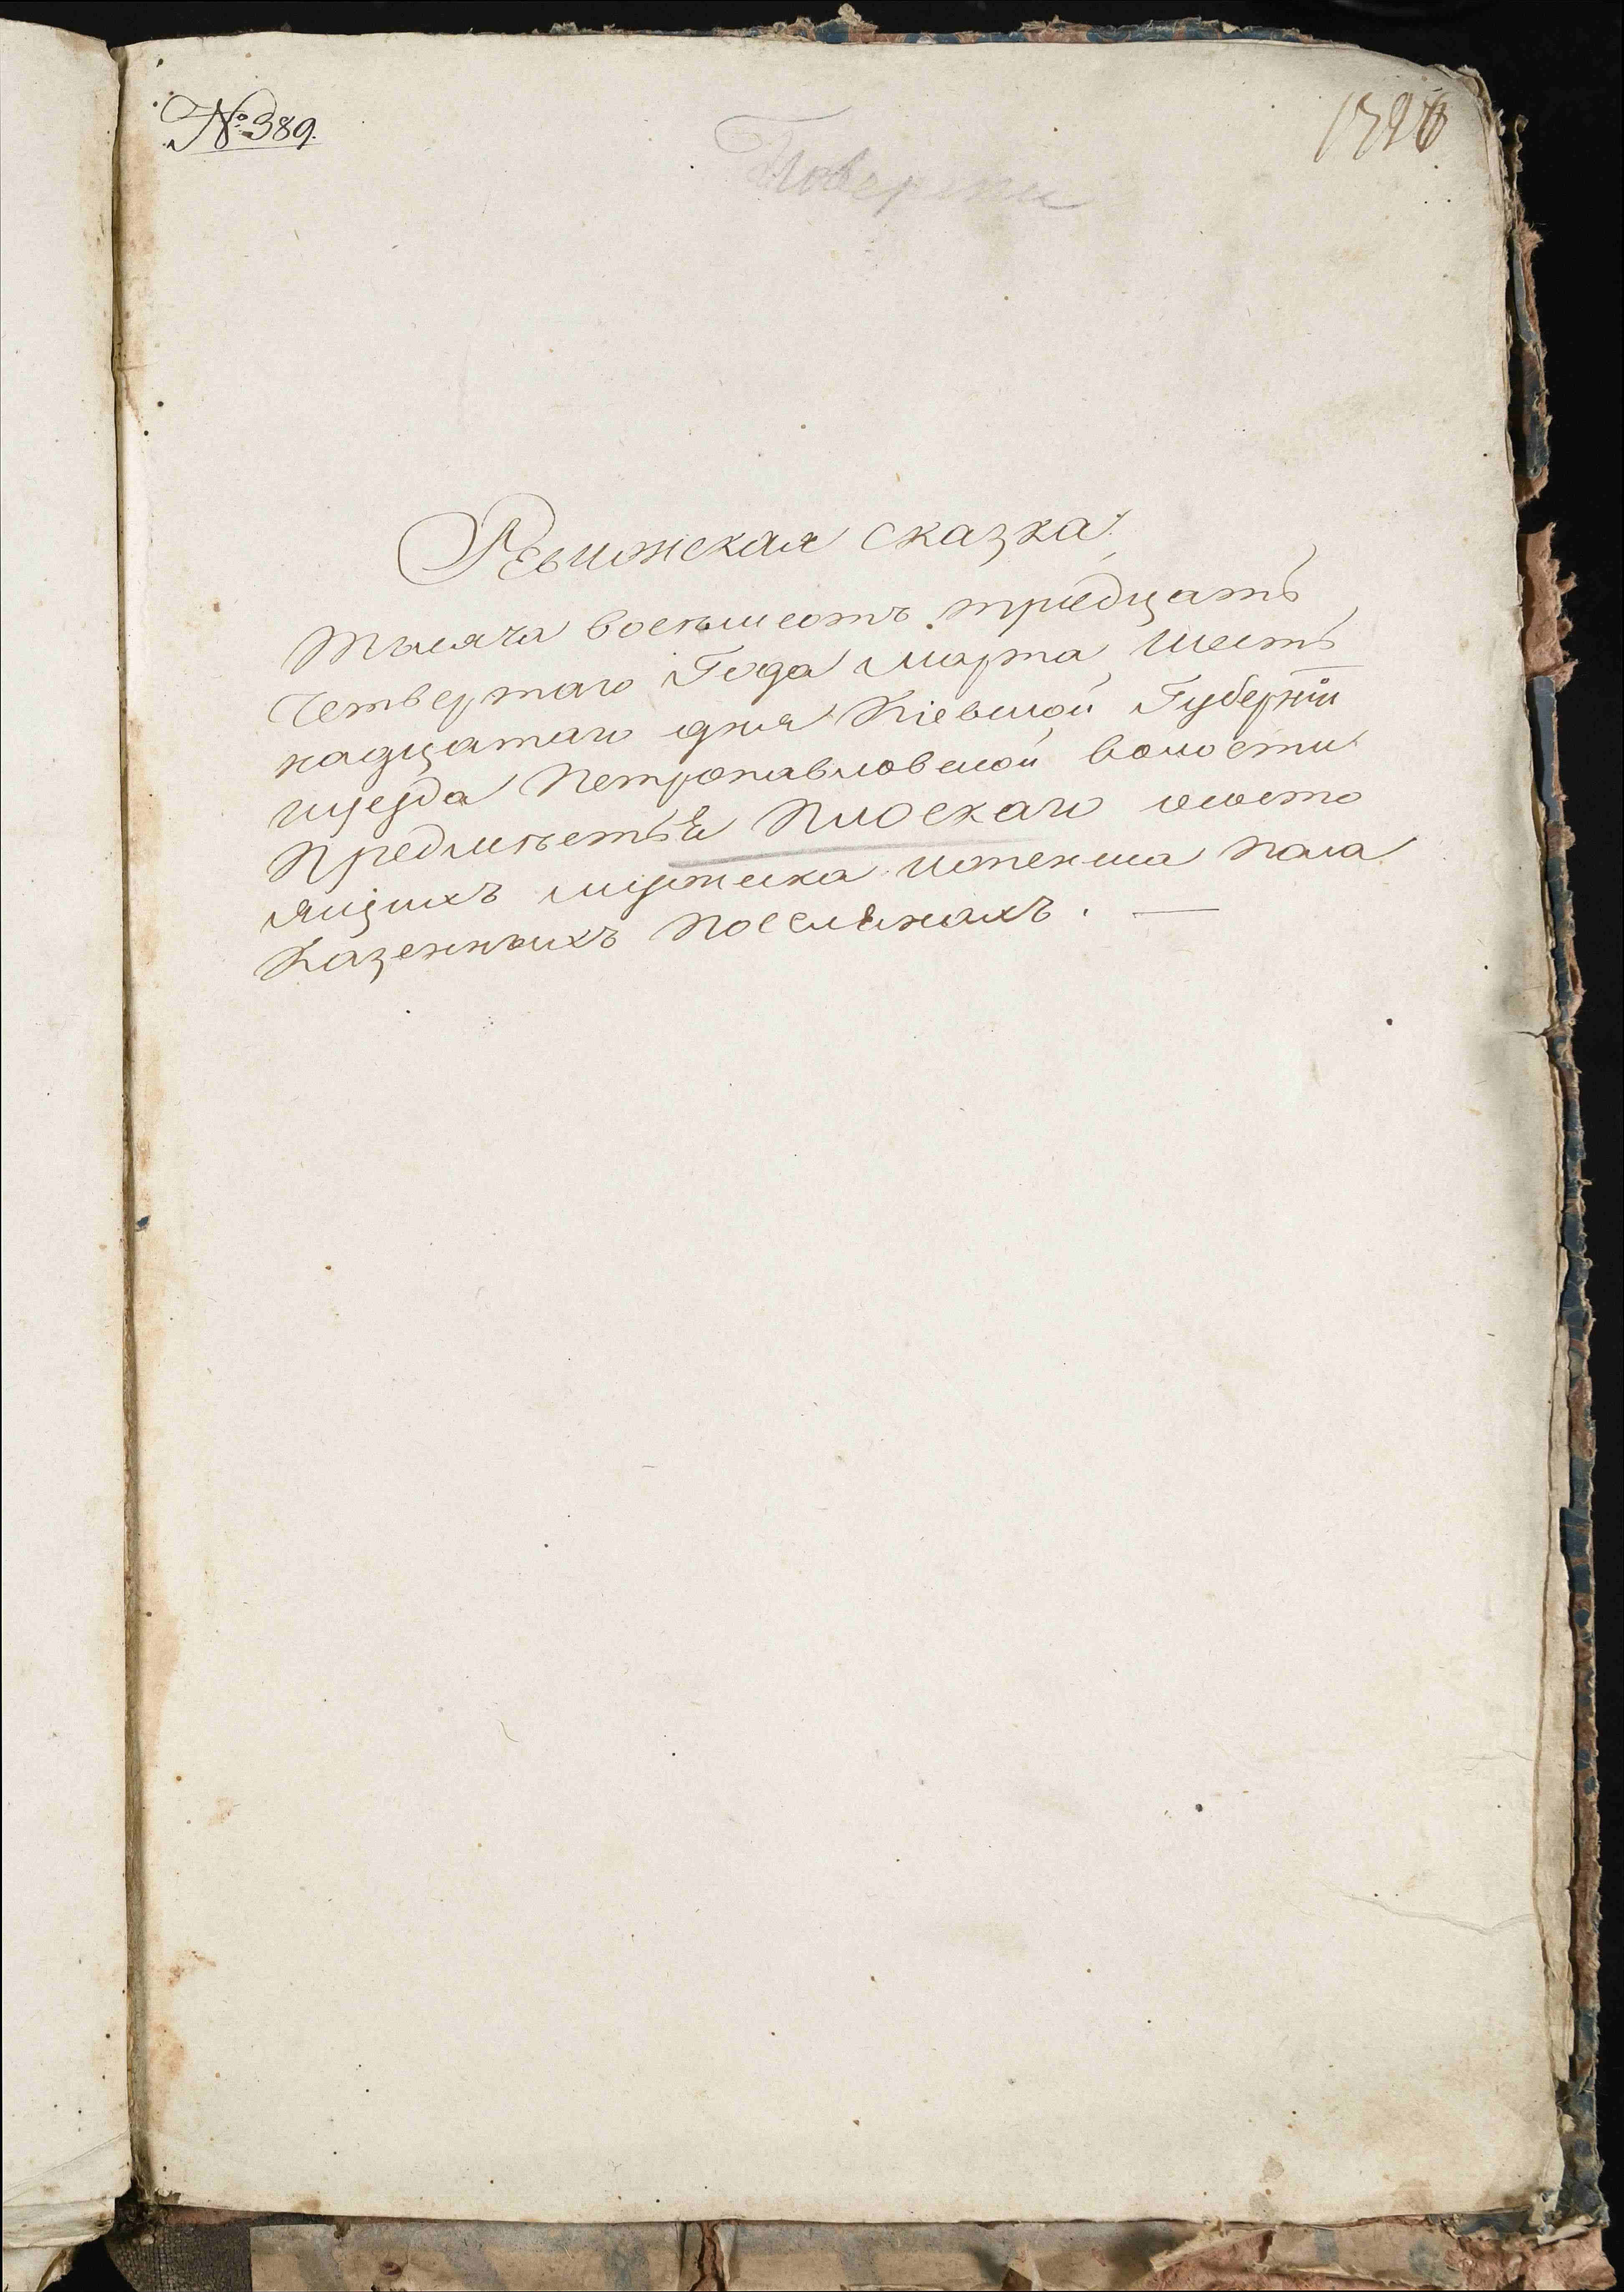 № 389.
Поверены
Ревижская сказка
тысяча восемьсотъ тридцать
Четвертаго Года марта шест
надцатаго дня Кіевской Губерніи
уезда Петропавловской волости
Предмѣстья Плоскаго состо
ящихъ мужеска и женска пола
Казенныхъ поселянахъ. —